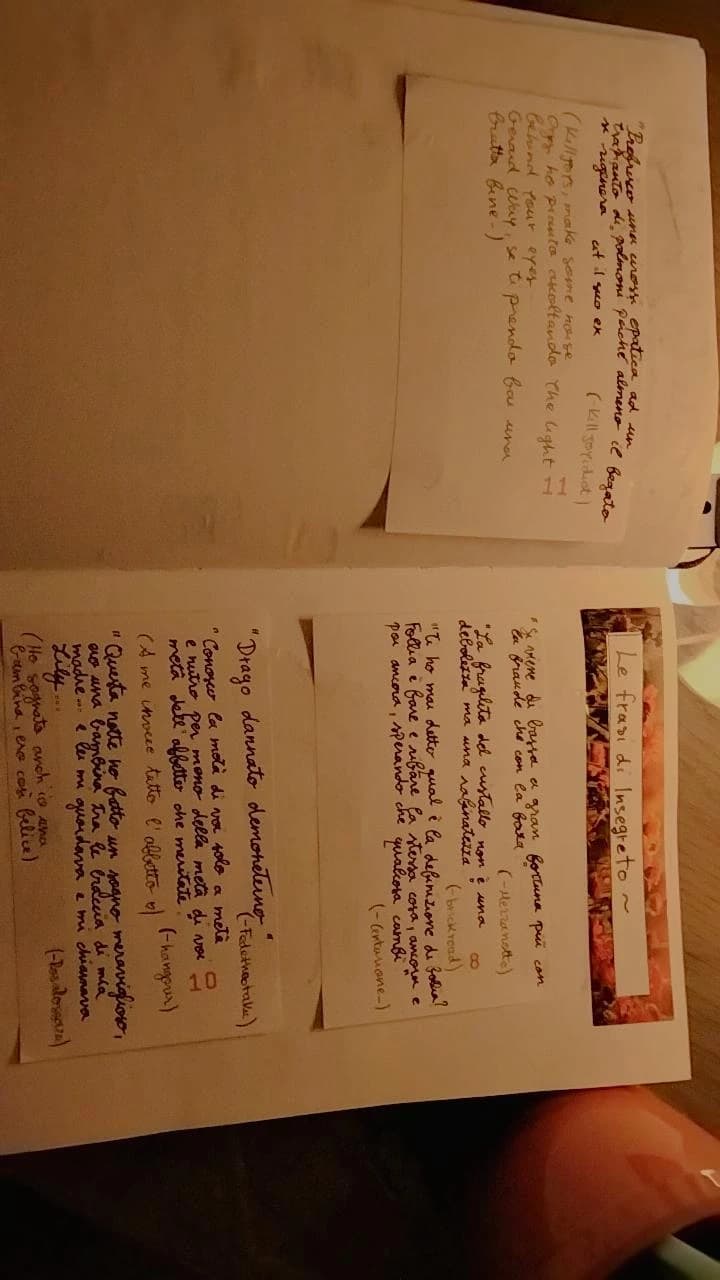 "Preferisco una cirrosi epatica ad un
trapianto di polmoni perché almeno il fegato
si rigenera" cit il suo ex
(-killjoyidiot)
(Killjoys, make some noise 11
Oggi ho pianto ascoltando The light 11
behind your eyes
Gerard Way, se ti prendo fai una
brutta fine-)
Le frasi di Insegreto ~
"Si viene di bassa a gran fortuna più con
la fraude che con la forza"
(-Mezzanotte)
"La fragilità del cristallo non è una
debolezza ma una rafinatezza
(-brickroad) 8
"Ti ho mai detto qual è la definizione di follia?
Follia è fare e rifare la stessa cosa, ancora e
poi ancora, sperando che qualcosa cambi"
(-Centurione-)
"Drago dannato demonietrino"
"Conosco la metà di voi solo a metà
e nutro per meno della metà di voi 10
metà dell'affetto che meritate"
(-hangover)
(A me invece tutto l'affetto
"Questa notte ho fatto un sogno meraviglioso,
ero una bambina tra le braccia di mia
madre... e lei mi guardava e mi chiamava
Lily...
(Ho sognato anch'io una
bambina, ero così felice)